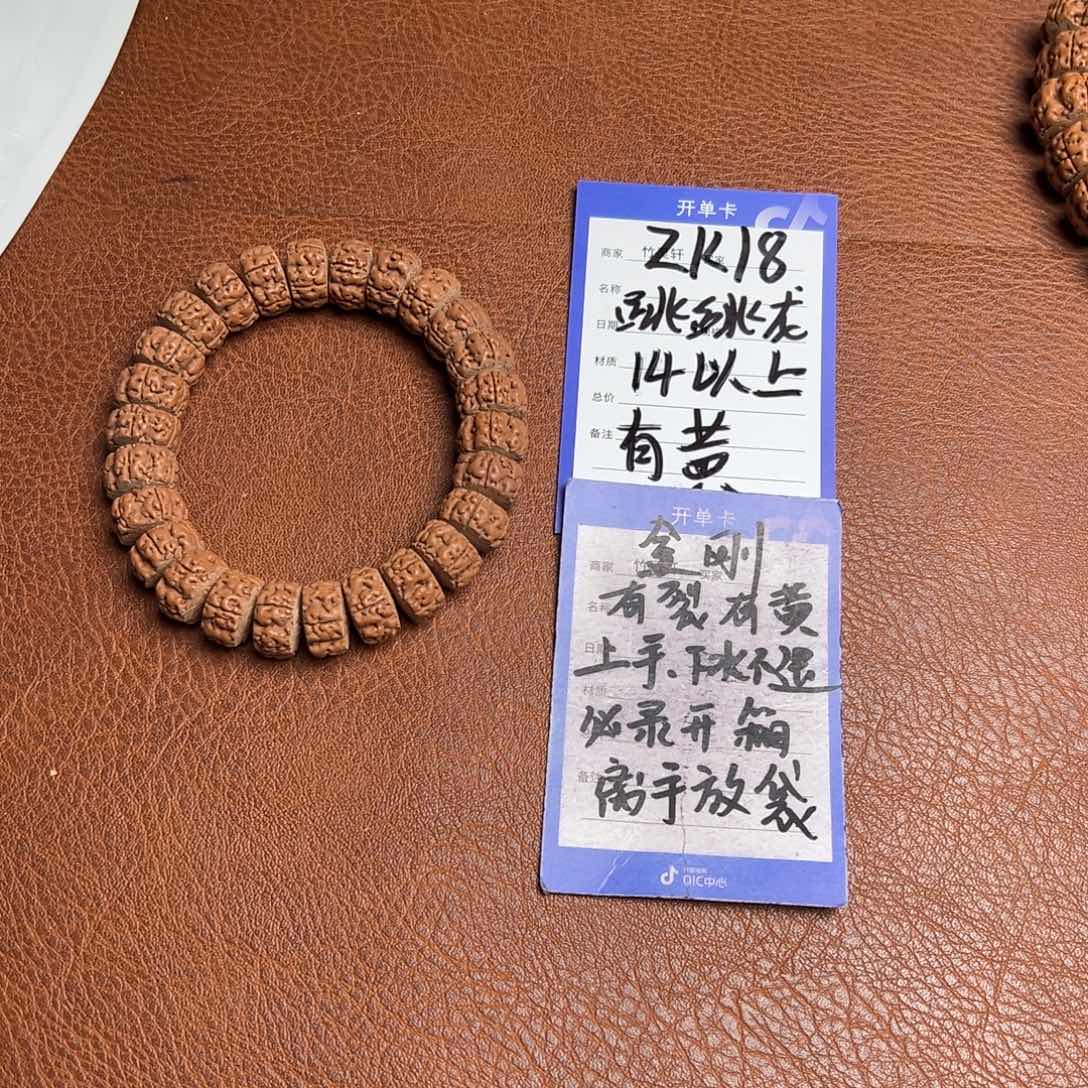 开单卡
商家 竹 轩
ZK18
名称
跳跳龙
日期
材质
14以上
总价
备注
有黄
开单卡
金刚
商家 竹 买家
名称
有裂有黄
日期
上手、下水不退
材质
必录开箱
备注
离手放袋
QIC中心